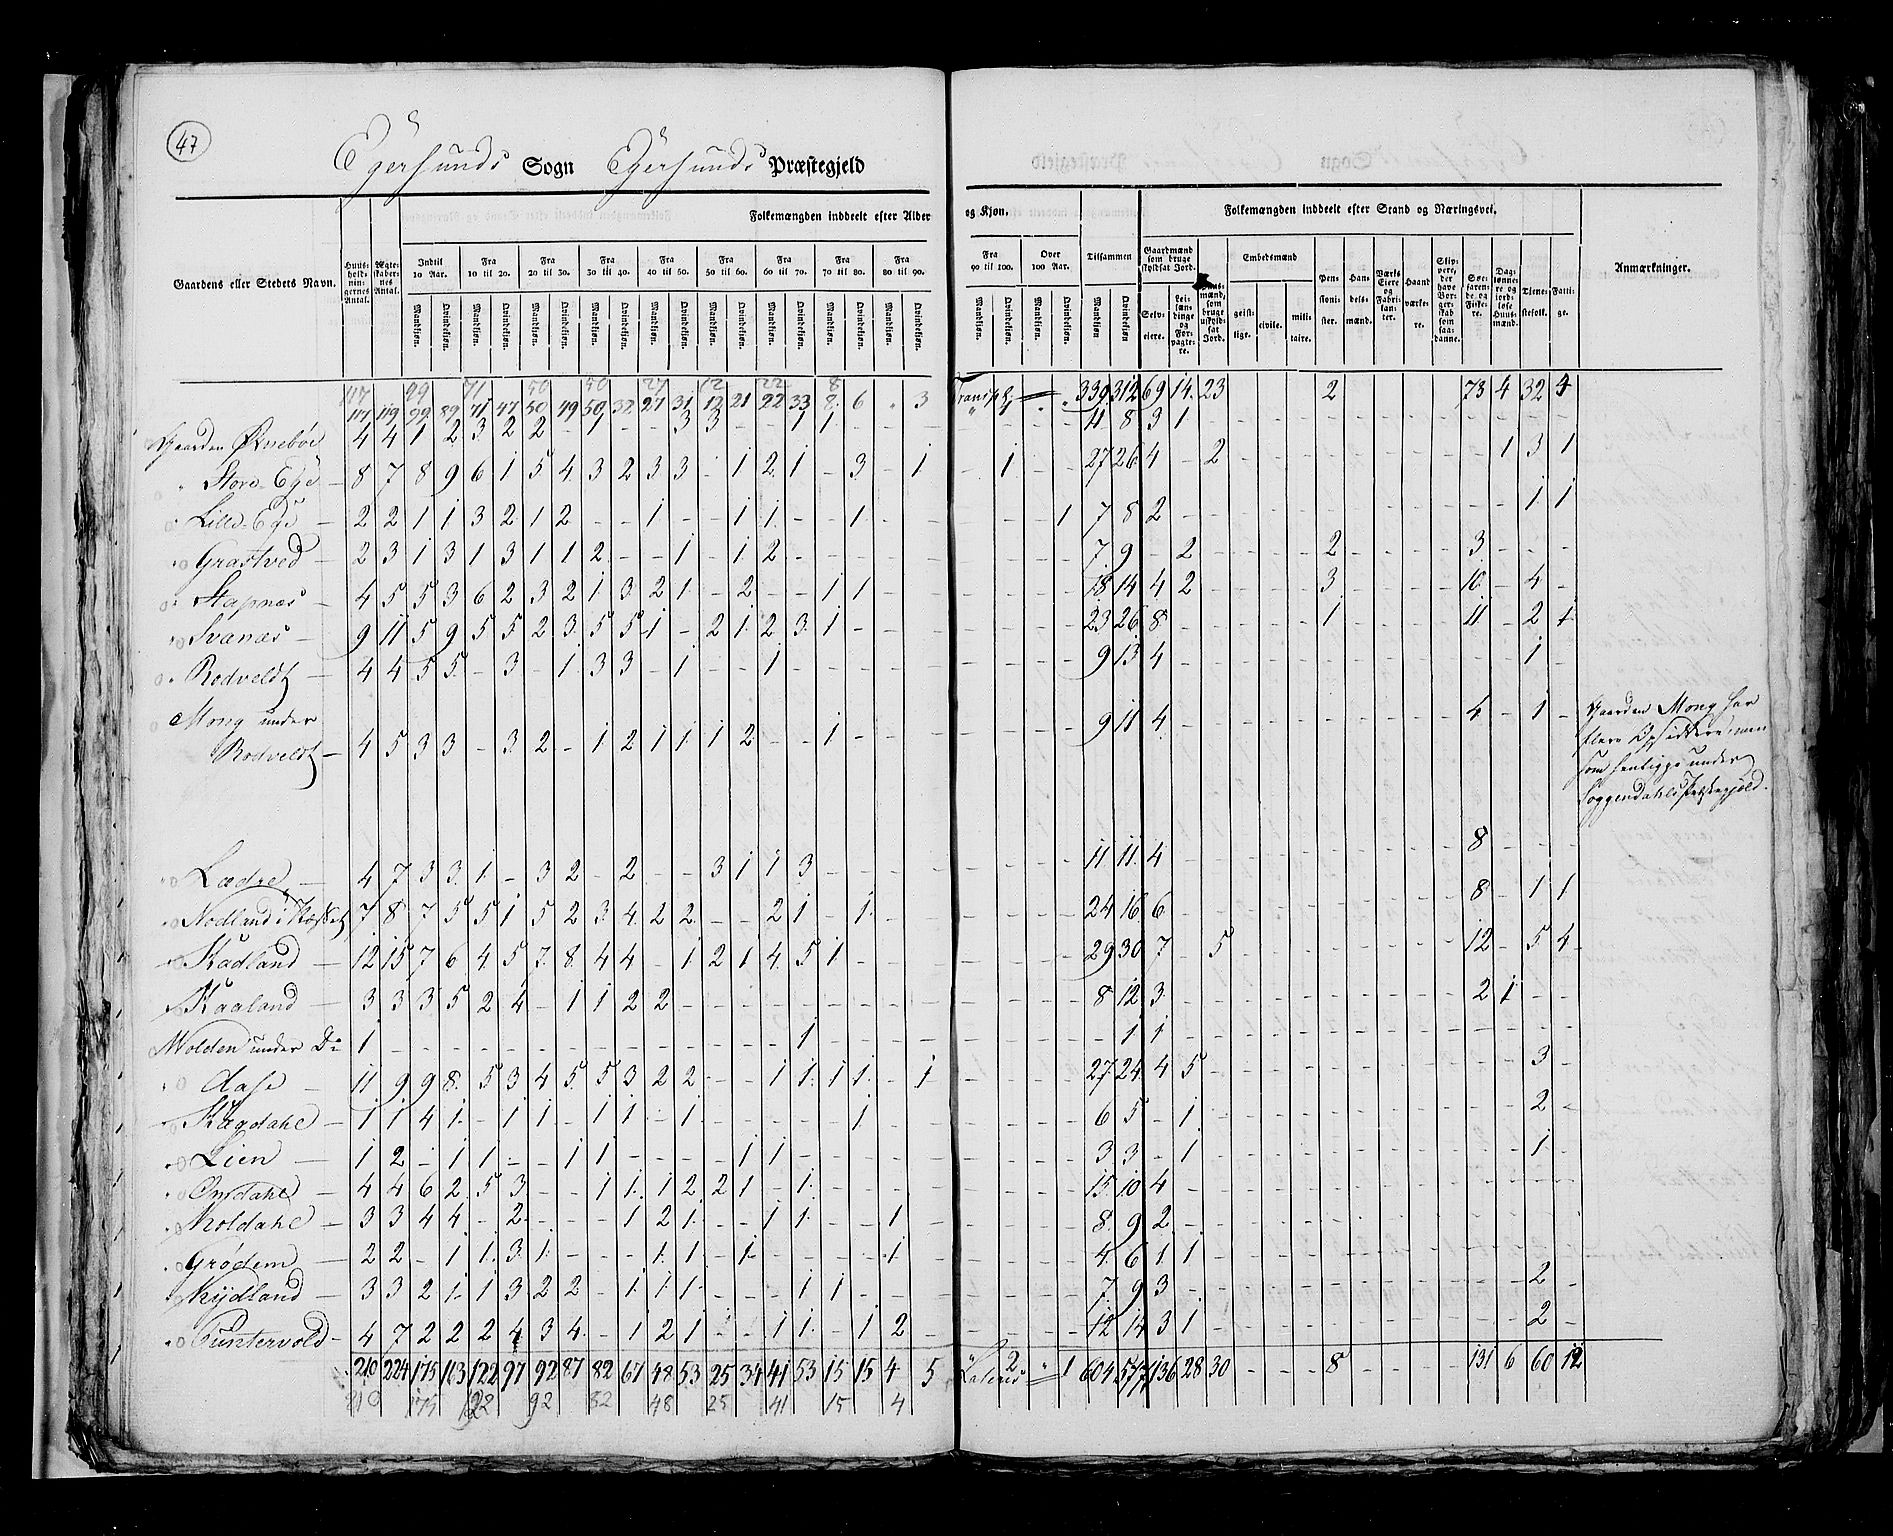 47
Egersunds Sogn Egersunds Præstegjeld
Folkemængden inddeelt efter Alder og Kjøn. Folkemængden inddeelt efter Stand og Næringsvei.
Gaardens eller Stedets Navn. Huusholdningernes Antal. Ægteskabernes Antal. Indtil 10 Aar. Fra 10 til 20. Fra 20 til 30. Fra 30 til 40. Fra 40 til 50. Fra 50 til 60. Fra 60 til 70. Fra 70 til 80. Fra 80 til 90. Fra 90 til 100. Over 100 Aar. Tilsammen Gaardmænd som bruge skyldsat Jord. Huusmænd, som bruge uskyldsat Jord. Embedsmænd Pensionister. Handelsmænd. Værks Eiere og Fabrikanter. Haandværkere. Skippere, der have Borgerskab som saadanne. Søefarende og Fiskere. Daglønnere og jordløse Huusmænd. Tjenestefolk. Fattige. Anmærkninger.
Mandkjøn. Qvindekjøn. Mandkjøn. Qvindekjøn. Mandkjøn. Qvindekjøn. Mandkjøn. Qvindekjøn. Mandkjøn. Qvindekjøn. Mandkjøn. Qvindekjøn. Mandkjøn. Qvindekjøn. Mandkjøn. Qvindekjøn. Mandkjøn. Qvindekjøn. Mandkjøn. Qvindekjøn. Mandkjøn. Qvindekjøn. Mandkjøn Qvindekjøn Selveiere. Leilændinge og Forpagtere. geistlige. civile. militaire.
117 99 71 50 50 27 12 22 8
117 119 99 89 71 47 50 49 50 32 27 31 12 21 22 33 8 6 " 3 Transp. " " 339 312 69 14 23 2 78 4 32 4
Gaarden Øknebøe 4 4 1 2 3 2 2 - 1 - - 3 3 - - 1 1 - - - - - - - 11 8 3 1
" Store-Ege - 8 7 8 9 6 1 5 4 3 2 3 3 - 1 2 1 - 3 - 1 - 1 - - 27 26 4 - 2 1 3 1
Lille-Ege - 2 2 1 1 3 2 1 2 - - 1 - - 1 1 - - 1 - - - - - 1 7 8 2 1 1
Grastved - 2 3 1 3 1 3 1 1 2 - - 1 - 1 2 - - - - - - - - - 7 9 - 2 2 3
Stapnæs - 4 5 5 3 6 2 3 2 1 3 2 1 - 2 - - 1 1 - - - - - - 18 14 4 2 3 10 - 4 -
Svanæs - 9 11 5 9 5 5 2 3 5 5 1 - 2 1 2 3 1 - - - - - - - 23 26 8 1 11 - 2 1
Rodveldt - 4 4 5 5 - 3 - 1 3 3 - 1 - - 1 - - - - - - - - - 9 13 4 1
Mong under
Rodveldt - 4 5 3 3 - 3 2 - 1 2 1 1 1 2 - - 1 - - - - - - - 9 11 4 4 - 1 -
Gaarden Mong har
flere Opsiddere, men
som henligge under
Soggendahls Præstegjeld.
Lædre - 4 7 3 3 1 - 3 2 - 2 - - 3 1 1 3 - - - - - - - - 11 11 4 8
Nodland i 7 8 7 5 5 1 5 2 3 4 2 2 - - 2 1 - 1 - - - - - - 24 16 6 8 - 1 1
Kadland - 12 15 7 6 4 5 7 8 4 4 - 1 2 1 4 5 1 - - - - - - - 29 30 7 - 5 12 - 5 4
Kaaland - 3 3 3 5 2 4 - 1 1 2 2 - - - - - - - - - - - - - 8 12 3 2 1
Molden under Do 1 - - - - - - - - - - - - - - 1 - - - - - - - - - 1 1
Aase - 11 9 9 8 5 3 4 5 5 3 2 2 - - 1 1 1 1 - 1 - - - - 27 24 4 5 3
Kagdahl - 1 1 4 1 - 1 1 - 1 1 - 1 - - - - - 1 - - - - - - 6 5 - 1 2
Lien - 1 2 - 1 1 - - 1 1 - - - - 1 1 - - - - - - - - - 3 3 - 1 1
Omdahl - 4 4 6 2 5 3 - - 1 1 1 2 2 1 - 1 - - - - - - - - 15 10 4
Moldahl - 3 3 4 4 - 2 - - - 1 2 1 - - 1 1 - - 1 - - - - - 8 9 2
Grødem - 2 2 - 1 1 3 1 - - - 1 1 - 1 - - - - 1 - - - - - 4 6 1 1
Mydland 3 3 2 1 1 3 2 2 - 1 1 1 - - - 1 1 - - - - - - - 7 9 3 2
Puntervold - 4 7 2 2 2 4 3 4 - 1 2 1 - - 1 1 - 1 2 - - - - - 12 14 3 1 2
210 224 175 163 122 97 92 87 82 67 48 53 25 34 41 53 15 15 4 5 Lateris " 2 " 1 604 577 136 28 30 8 131 6 60 12
210 175 122 92 82 48 25 41 15 4